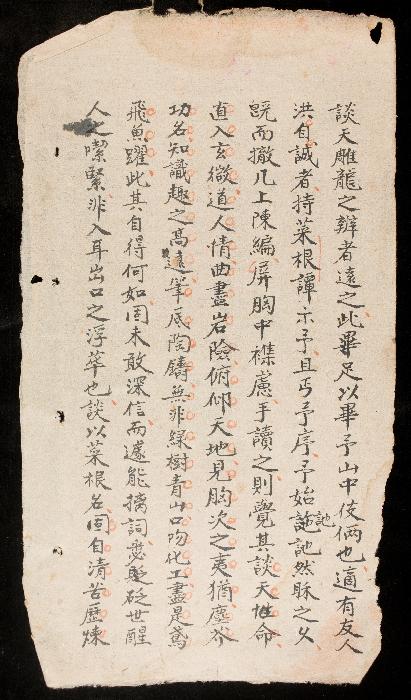 談天雕龍之辯者遠之此畢足以畢予山中伎倆也適有友人
洪自誠者持菜根譚示予且丐予序予始訑訑然眎之乂
旣而撤几上陳編屏胸中襍慮手讀之則覺其談天性命
直入玄微道人情曲盡岩險俯仰天地見胸次之夷猶塵芥
功名知識趣之高遠筆底陶鑄無非綠樹青山口吻化工盡是鳶
飛魚躍此其自得何如固未敢深信而據能摘詞悉砭世醒
人之喫緊非入耳出口之浮萃也談以菜根名固自清苦歷煉